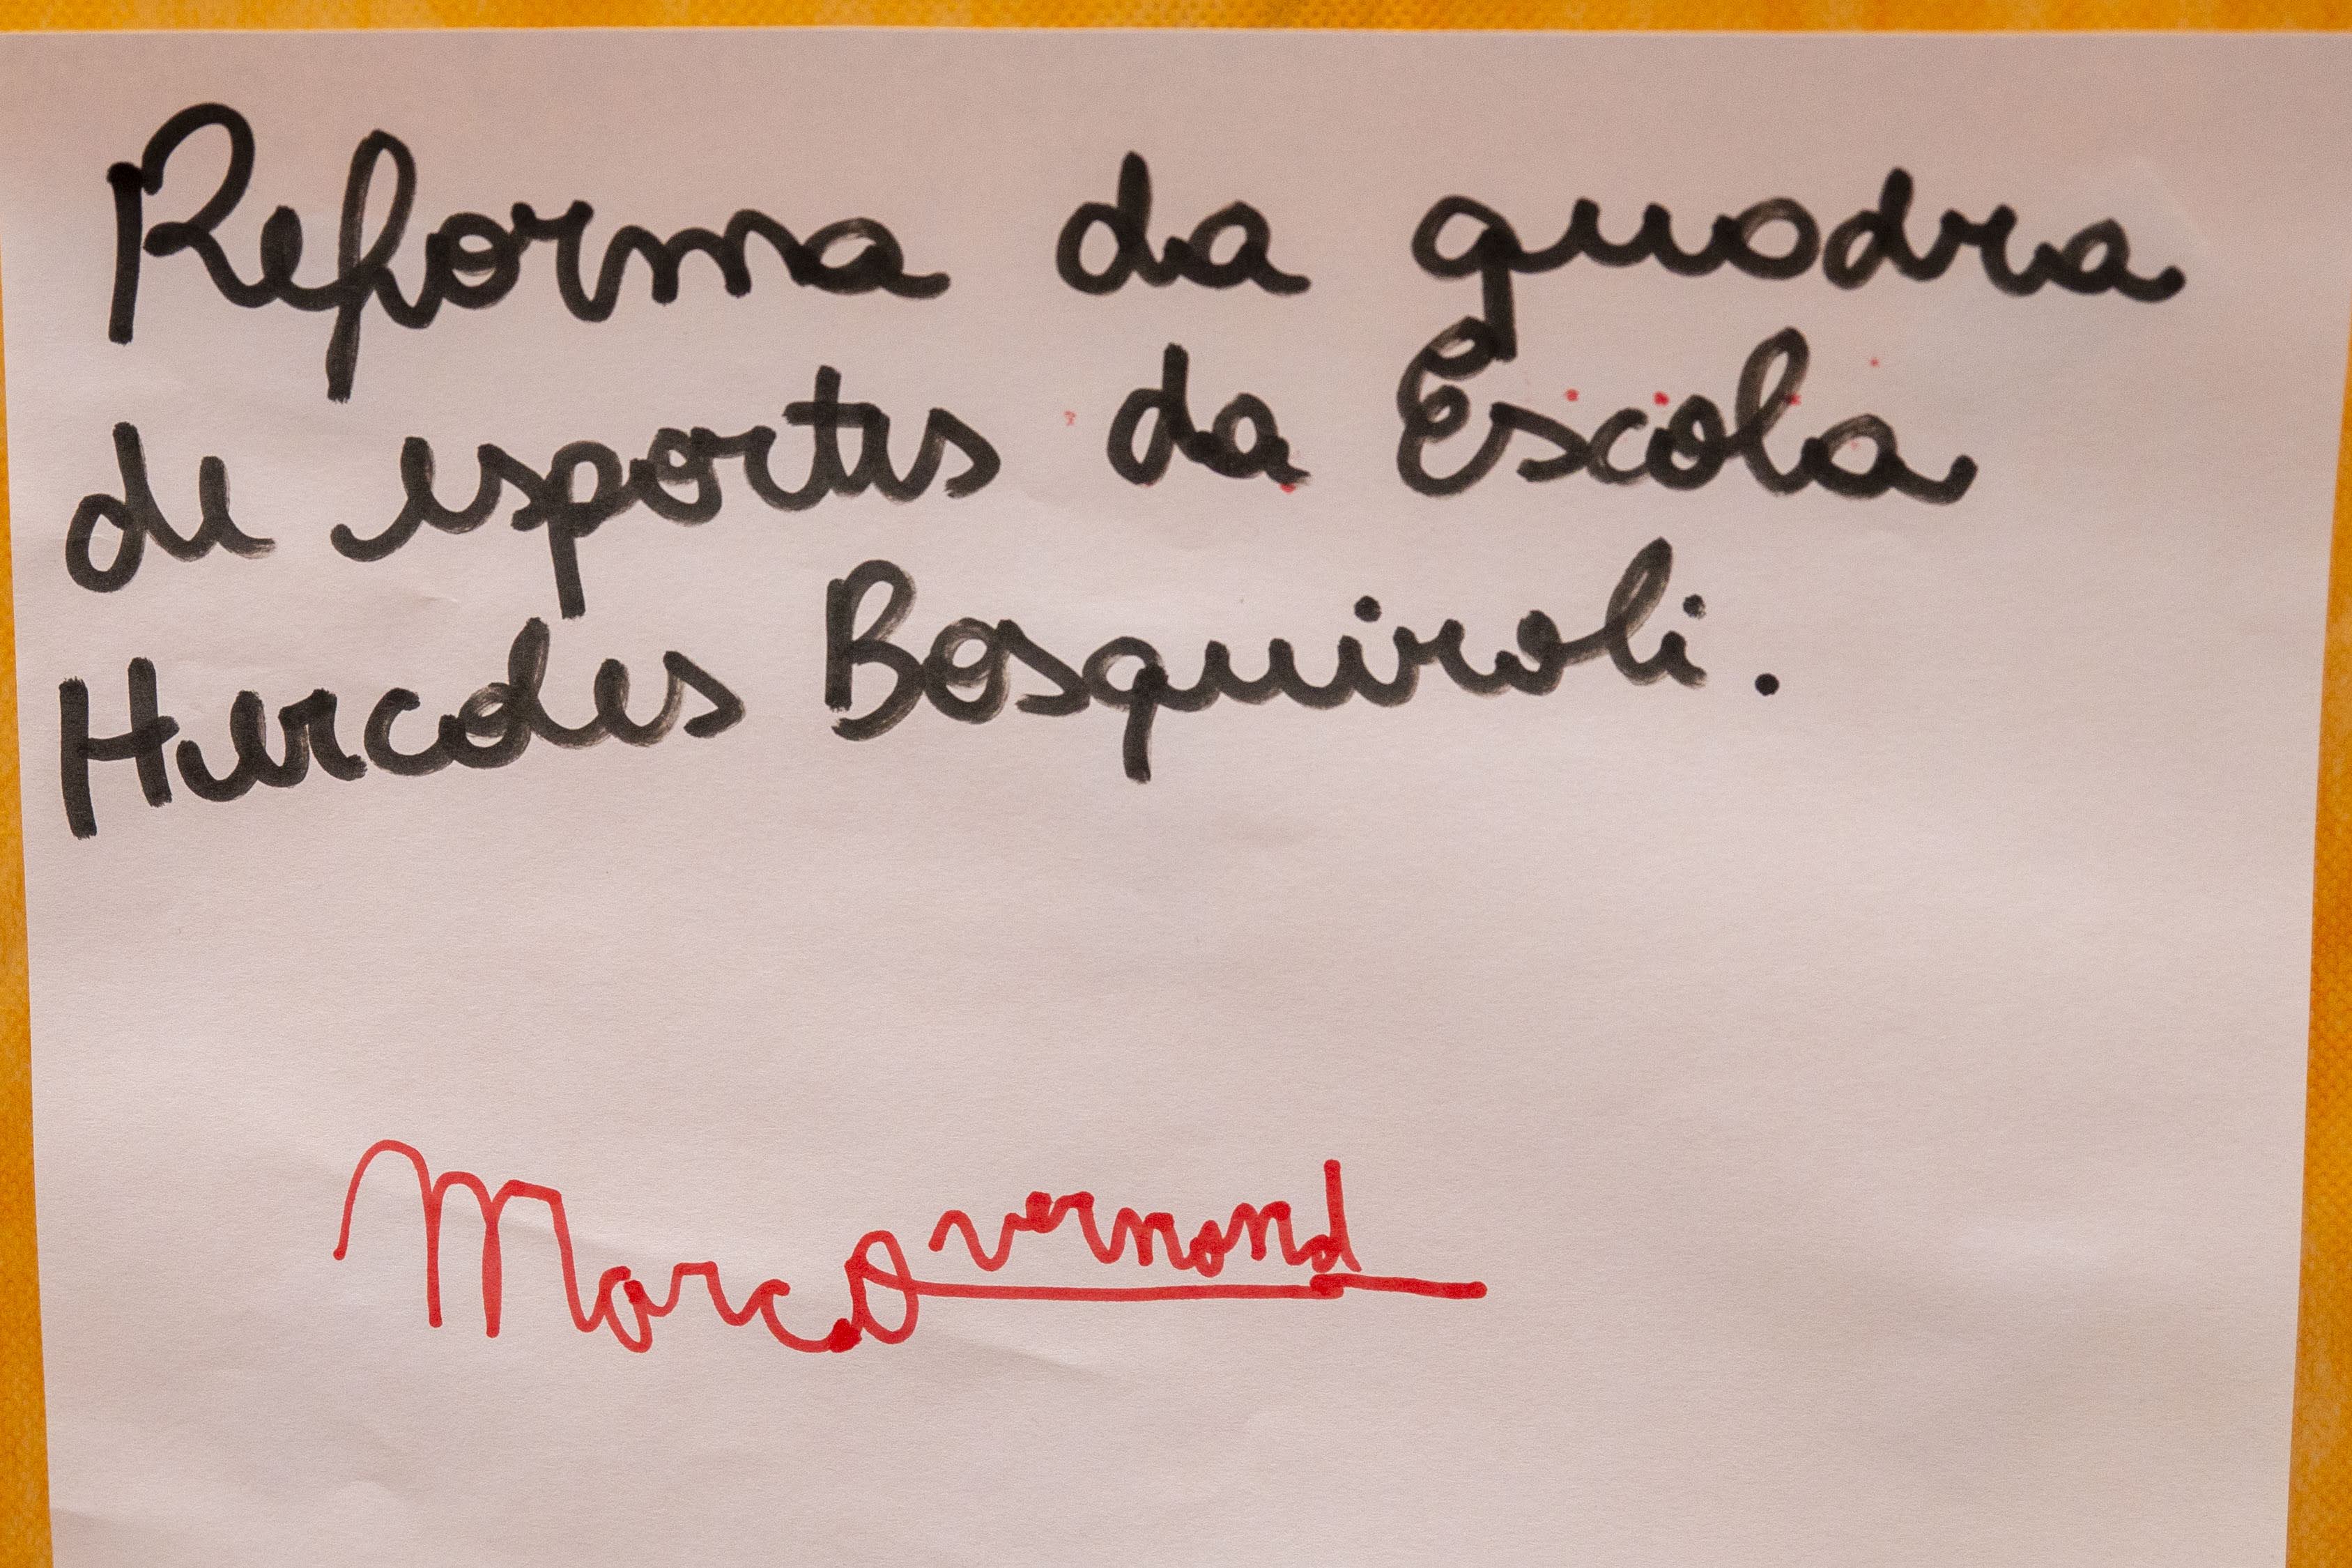 Reforma da quadra
de esportes da Escola
Hercoles Bosquiroli.
Marco vernond